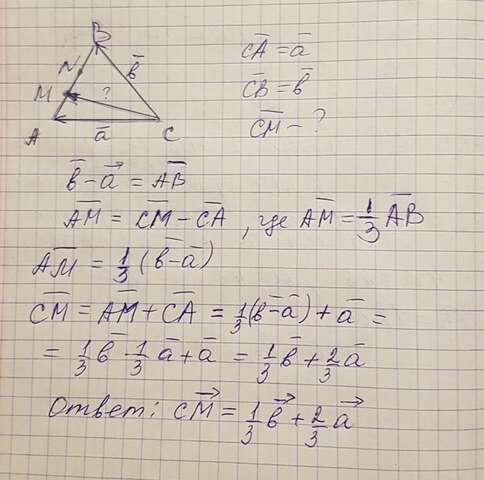 B
N
b̅
M
?
A
a̅
C
C̅A̅ = a̅
C̅B̅ = b̅
C̅M̅ - ?
b̅ - a⃗ = A̅B̅
A̅M̅ = C̅M̅ - C̅A̅ , где A̅M̅ = 1/3 A̅B̅
A̅M̅ = 1/3 (b̅ - a̅)
C̅M̅ = A̅M̅ + C̅A̅ = 1/3 (b̅ - a̅) + a̅ =
= 1/3 b̅ - 1/3 a̅ + a̅ = 1/3 b̅ + 2/3 a̅
Ответ: CM⃗ = 1/3 b⃗ + 2/3 a⃗